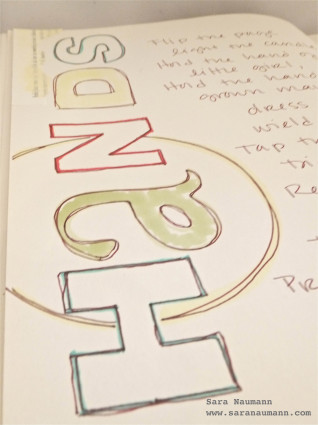 HaNDS
Flip the page.
light the candle
Hold the hand of
little girl.
Hold the hand
grown ma
dress
wield
Tap th
tri
Re
Pr
Sara Naumann
www.saranaumann.com